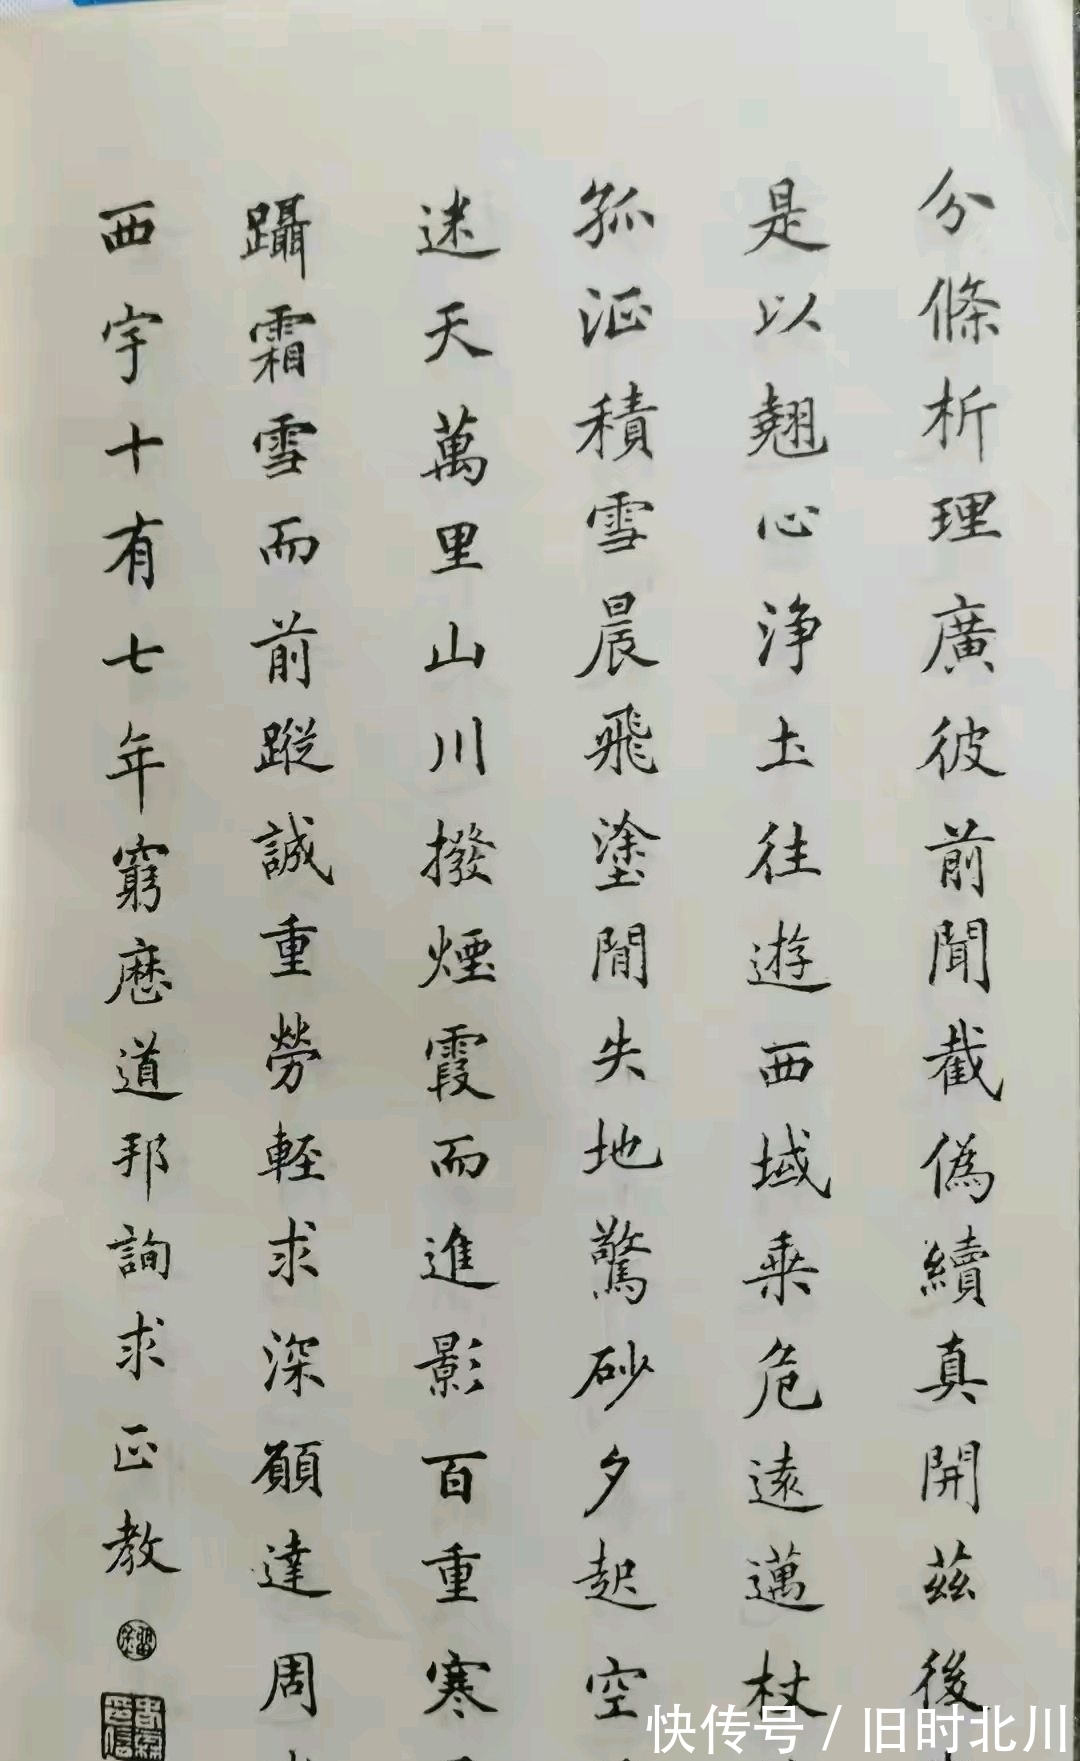 分條析理廣彼前聞截偽續真開茲後
是以翹心浄土往遊西域乗危遠邁杖
孤征積雪晨飛塗閒失地驚砂夕起空
迷天萬里山川撥煙霞而進影百重寒
躡霜雪而前蹤誠重勞輕求深願達周
西宇十有七年窮歷道邦詢求正教
快传号 / 旧时北川